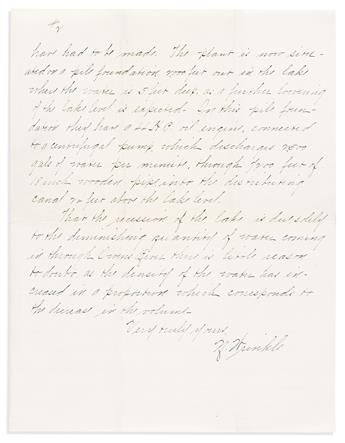 #2
have had to be made. The plant is now situ-
ated on a pile foundation 1100 feet out in the lake
where the water is 5 feet deep, as a further lowering
of the lake level is expected. On this pile foun-
dation they have a 40 H.P. oil engine, connected
to a centrifugal pump which discharges
gals of water per minute, through feet of
18 inch wooden pipe, into the distributing
canal feet above the lake level.
That the recession of the lake is due solely
to the diminishing quantity of water coming
in through Owens River there is little reason
to doubt as the density of the water has in-
creased in a proportion which corresponds to
the decrease in the volume.
Very truly yours,
Hinkle